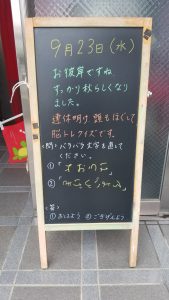 9月23日(水)
お彼岸ですね
すっかり秋らしくなり
ました。
連休明け、頭もほぐして
脳トレクイズです。
(問)バラバラ文字を直して
ください。
①「
②「
(答)
①おはよう ②ごきげんよう